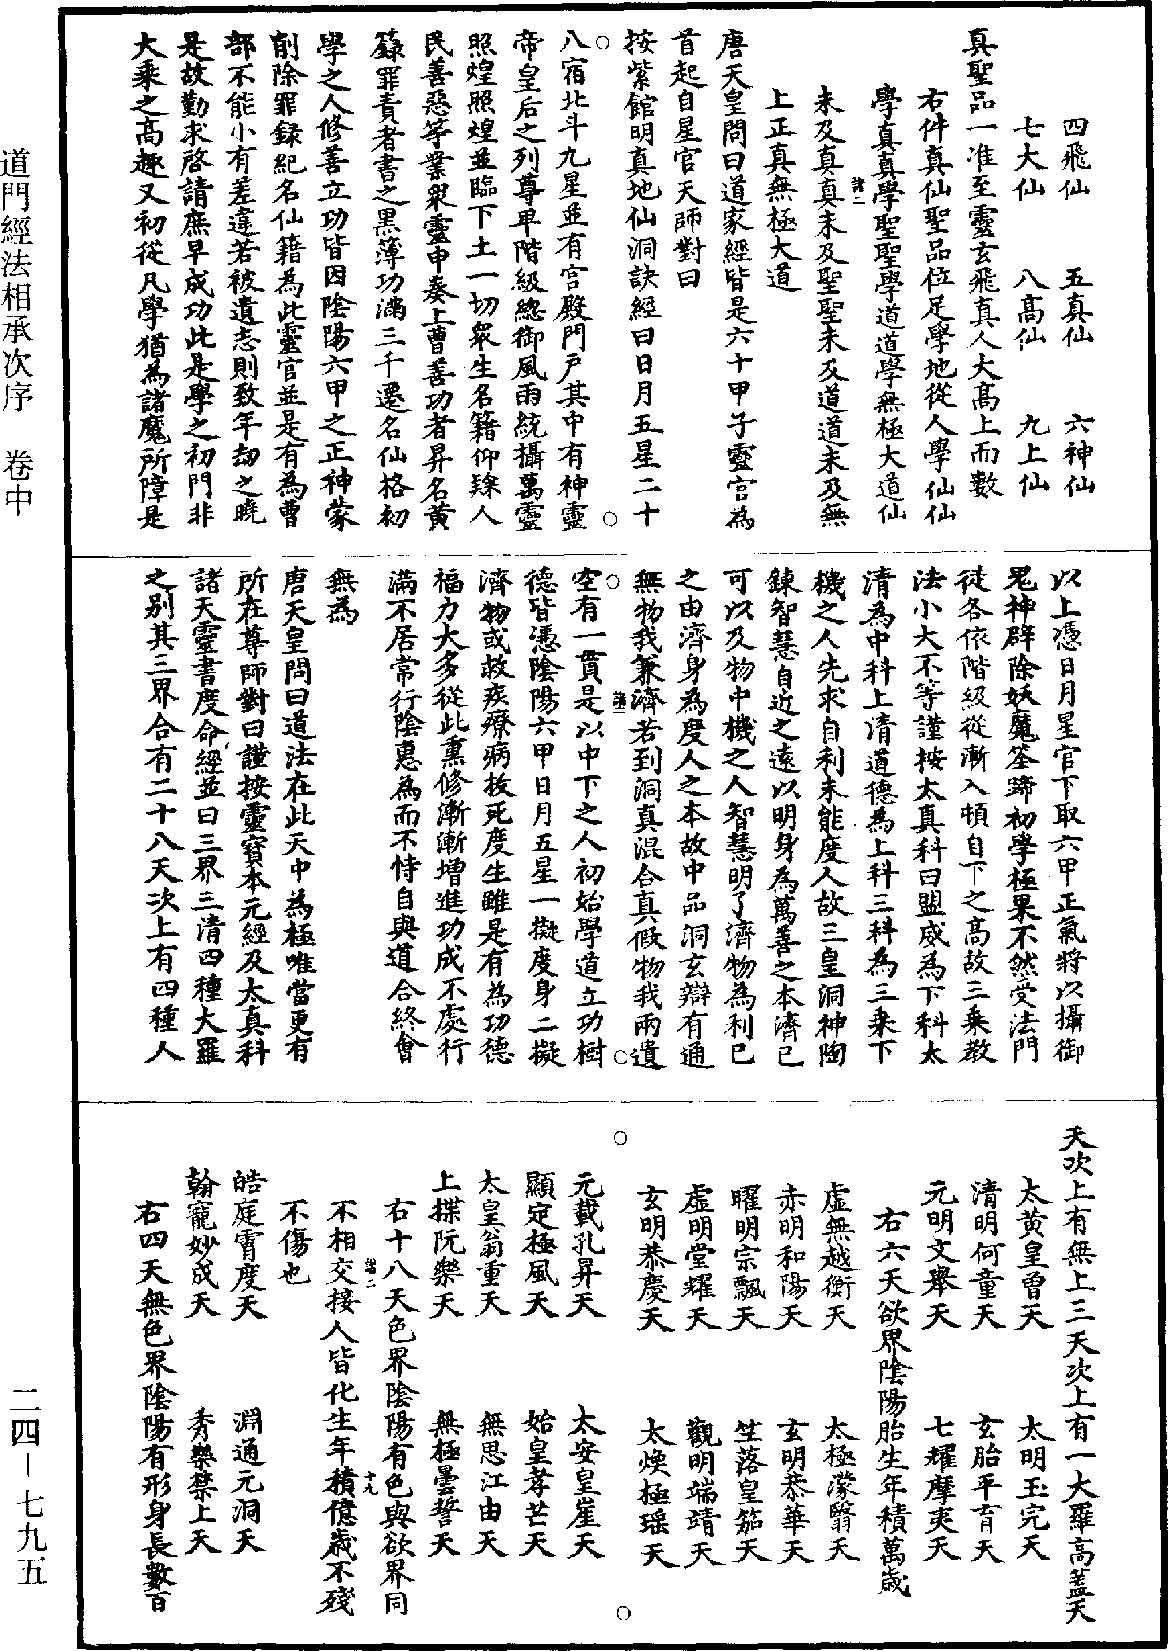 四飛仙　五真仙　六神仙
七大仙　八高仙　九上仙
真聖品一准至靈玄飛真人大高上而數
右件真仙聖品位足學地從人學仙仙
學真真學聖聖學道道學無極大道仙
未及真真未及聖聖未及道道未及無
上正真無極大道
唐天皇問曰道家經皆是六十甲子靈官為
首起自星官天師對曰
按紫館明真地仙洞訣經曰日月五星二十
八宿北斗九星並有宮殿門戶其中有神靈
帝皇后之列尊卑階級總御風雨統攝萬靈
照煌照煌並臨下土一切衆生名籍仰錄人
民善惡等業衆靈申奏上曹善功者昇名黃
籙罪責者書之黑簿功滿三千遷名仙格初
學之人修善立功皆因陰陽六甲之正神蒙
削除罪錄紀名仙籍為此靈官並是有為曹
部不能小有差違若被遺忘則致年劫之曉
是故勤求啓請庶早成功此是學之初門非
大乘之高趣又初從凡學猶為諸魔所障是
以上憑日月星官下取六甲正氣將以攝御
鬼神辟除妖魔筌蹄初學極果不然受法門
徒各依階級從漸入頓自下之高故三乘教
法小大不等謹按太真科曰盟威為下科太
清為中科上清道德為上科三科為三乘下
機之人先求自利未能度人故三皇洞神陶
鍊智慧自近之遠以明身為萬善之本濟己
可以及物中機之人智慧明了濟物為利己
之由濟身為度人之本故中品洞玄辯有通
無物我兼濟若到洞真混合真假物我兩遺
空有一貫是以中下之人初始學道立功樹
德皆憑陰陽六甲日月五星一擬度身二擬
濟物或救疾療病拔死度生雖是有為功德
福力大多從此熏修漸漸增進功成不處行
滿不居常行陰惠為而不恃自與道合終會
無為
唐天皇問曰道法在此天中為極唯當更有
所在尊師對曰謹按靈寶本元經及太真科
諸天靈書度命經並曰三界三清四種大羅
之别其三界合有二十八天次上有四種人
天次上有無上三天次上有一大羅高蓋天
太黃皇曾天　太明玉完天
清明何童天　玄胎平育天
元明文舉天　七耀摩夷天
右六天欲界陰陽胎生年積萬歲
虛無越衡天　太極濛翳天
赤明和陽天　玄明恭華天
曜明宗飄天　竺落皇笳天
虛明堂耀天　觀明端靖天
玄明恭慶天　太煥極瑶天
元載孔昇天　太安皇崖天
顯定極風天　始皇孝芒天
太皇翁重天　無思江由天
上揲阮樂天　無極曇誓天
右十八天色界陰陽有色與欲界同
不相交接人皆化生年積億歲不殘
不傷也
皓庭霄度天　淵通元洞天
翰寵妙成天　秀樂禁上天
右四天無色界陰陽有形身長數百
道門經法相承次序　卷中
二四－七九五